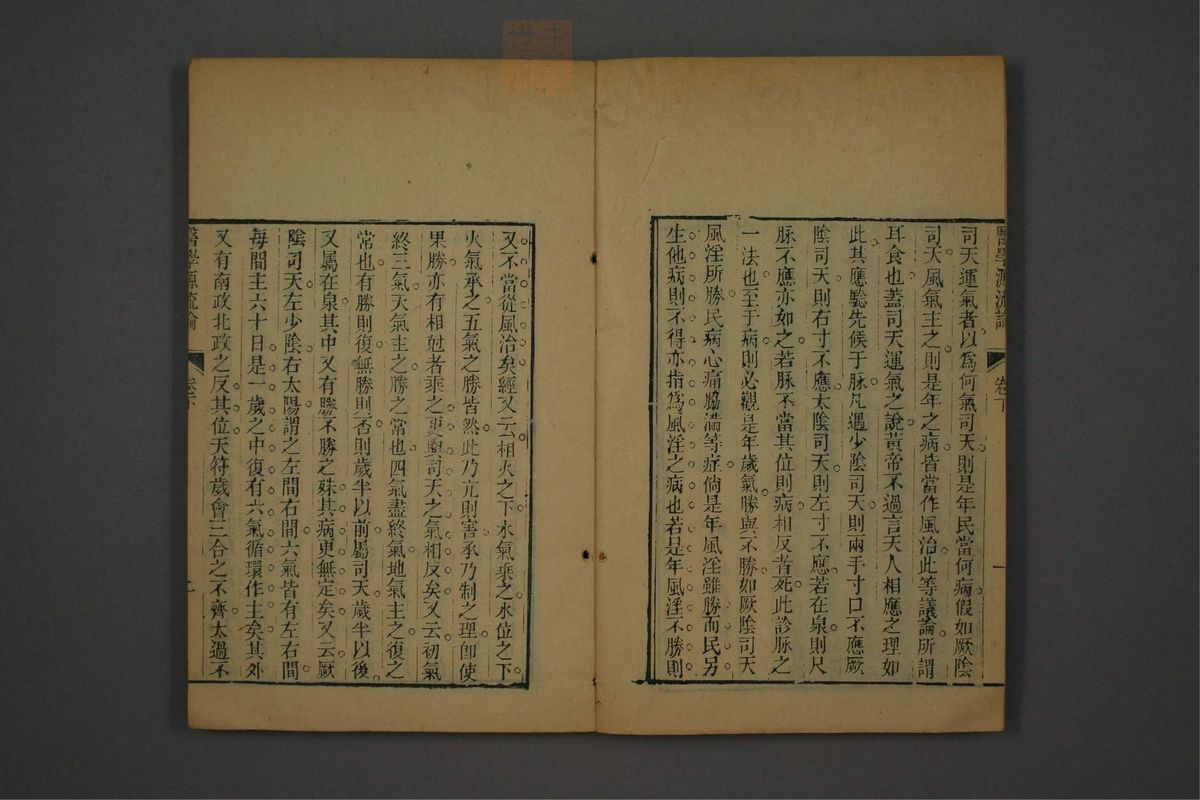 醫學源流論
卷下
一
司天運氣者以爲何氣司天則是年民當何病假如厥陰
司天風氣主之則是年之病皆當作風治此等議論所謂
耳食也蓋司天運氣之說黃帝不過言天人相應之理如
此其應驗先候于脉凡遇少陰司天則兩手寸口不應厥
陰司天則右寸不應太陰司天則左寸不應若在泉則尺
脉不應亦如之若脉不當其位則病相反者死此診脉之
一法也至于病則必觀是年歲氣勝與不勝如厥陰司天
風淫所勝民病心痛脇滿等症倘是年風淫雖勝而民另
生他病則不得亦指爲風淫之病也若是年風淫不勝則
又不當從風治矣經又云相火之下水氣乘之水位之下
火氣承之五氣之勝皆然此乃亢則害承乃制之理卽使
果勝亦有相尅者乘之更與司天之氣相反矣又云初氣
終三氣天氣主之勝之常也四氣盡終氣地氣主之復之
常也有勝則復無勝則否則歲半以前屬司天歲半以後
又屬在泉其中又有勝不勝之殊其病更無定矣又云厥
陰司天左少陰右太陽謂之左間右間六氣皆有左右間
每間主六十日是一歲之中復有六氣循環作主矣其外
又有南政北政之反其位天符歲會三合之不齊太過不
醫學源流論
卷下
二